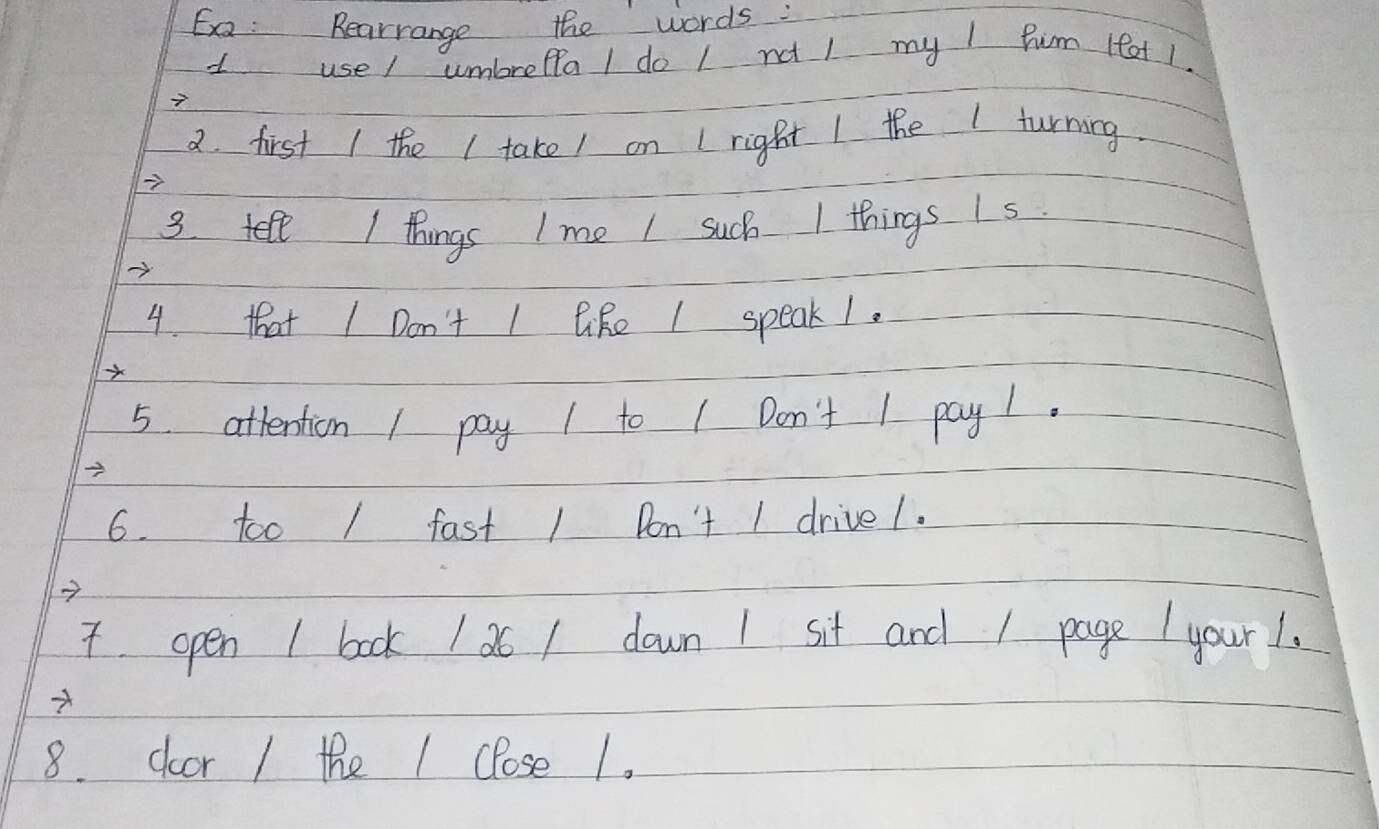 Ex2: Rearrange the words:
1 use / umbrella / do / not / my / him let /.
→
2. first / the / take / on / right / the / turning.
→
3. tell / things / me / such / things / s.
→
4. that / Don't / like / speak /.
→
5. attention / pay / to / Don't / pay /.
→
6. too / fast / Don't / drive /.
→
7. open / book / 26 / down / sit and / page / your /.
→
8. door / the / close /.